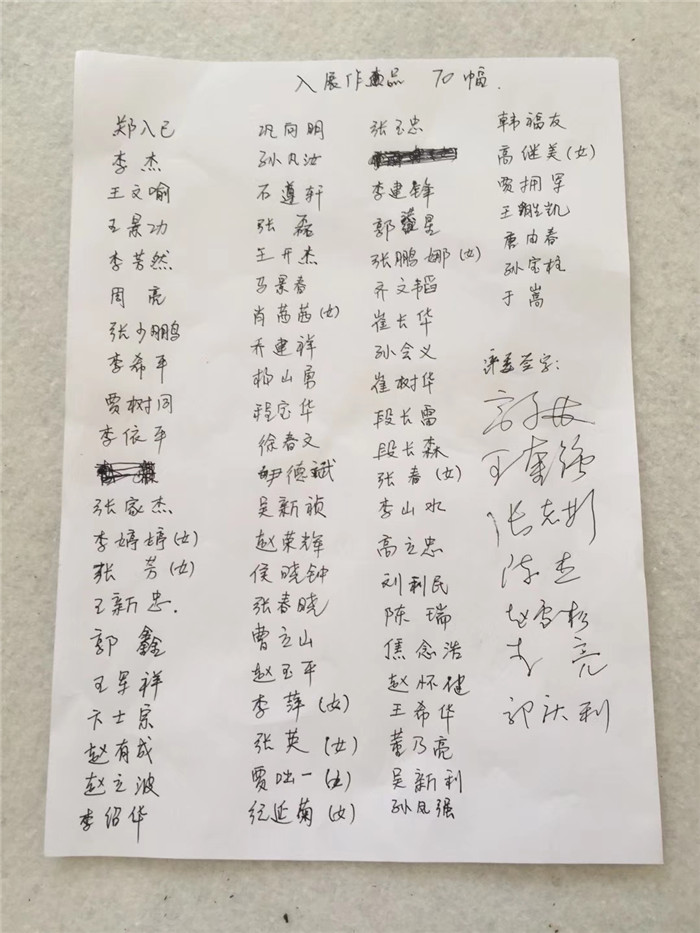 入展作品 70幅.
郑入已
李杰
王文喻
王景功
李芳然
周亮
张少鹏
李希平
贾树同
李依平
张家杰
李婷婷(女)
张芳(女)
王新忠.
郭鑫
王军祥
卞士宗
赵有成
赵立波
李绍华
巩向明
孙凡汝
石遵轩
张磊
王开杰
马景春
肖茜茜(女)
齐建祥
杨山勇
程宝华
徐春文
伊德斌
吴新祯
赵荣辉
侯晓钟
张春晓
曹立山
赵玉平
李萍(女)
张英(女)
贾咄一(女)
纪延菊(女)
张玉忠
李建锋
郭星
张鹏娜(女)
齐文韬
崔长华
孙会义
崔树华
段长雷
段长森
张春(女)
李山水
高立忠
刘利民
陈瑞
焦念浩
赵怀健
王希华
董乃亮
吴新利
孙凡强
韩福友
高继美(女)
贾拥军
王凯
唐由春
孙宝柱
于嵩
评委签字:
王奎强
张志彬
陈杰
赵雪松
李亮
郭庆利